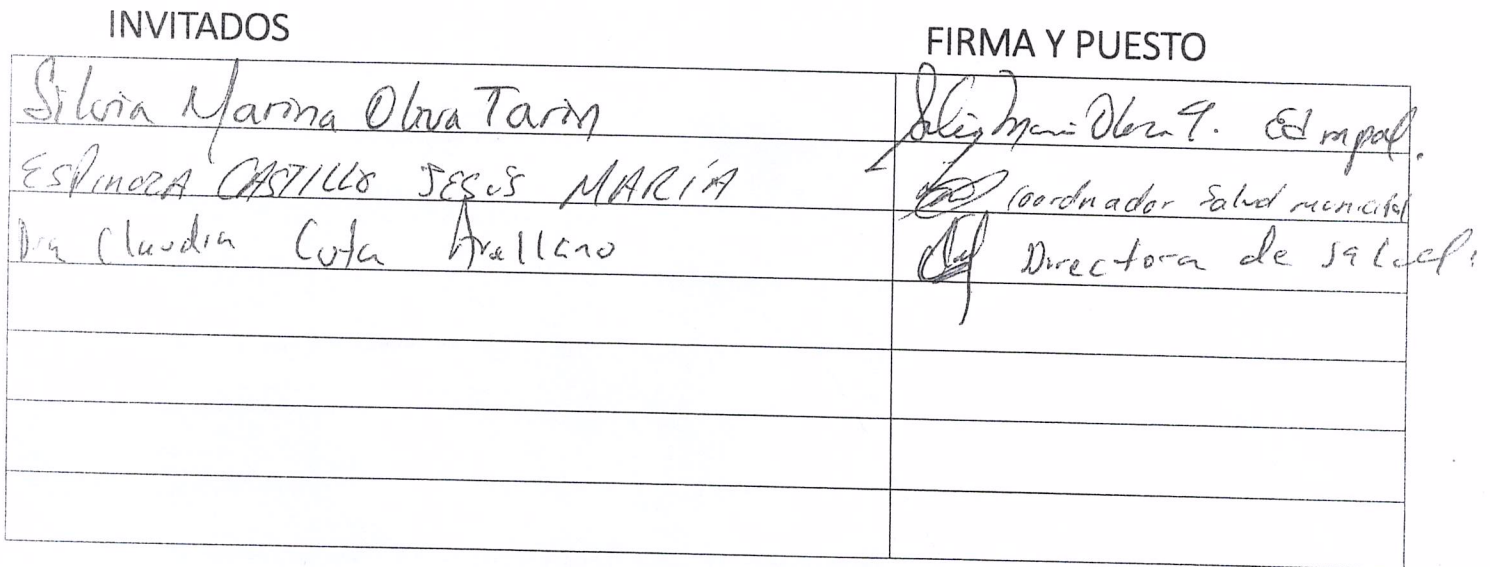 INVITADOS FIRMA Y PUESTO
Silvia Marina Oliva Tarin Ed mpal.
ESPINOZA CASTILLO JESÚS MARÍA Coordinador Salud municipal
Dra Claudia Cota Arellano Directora de salud.